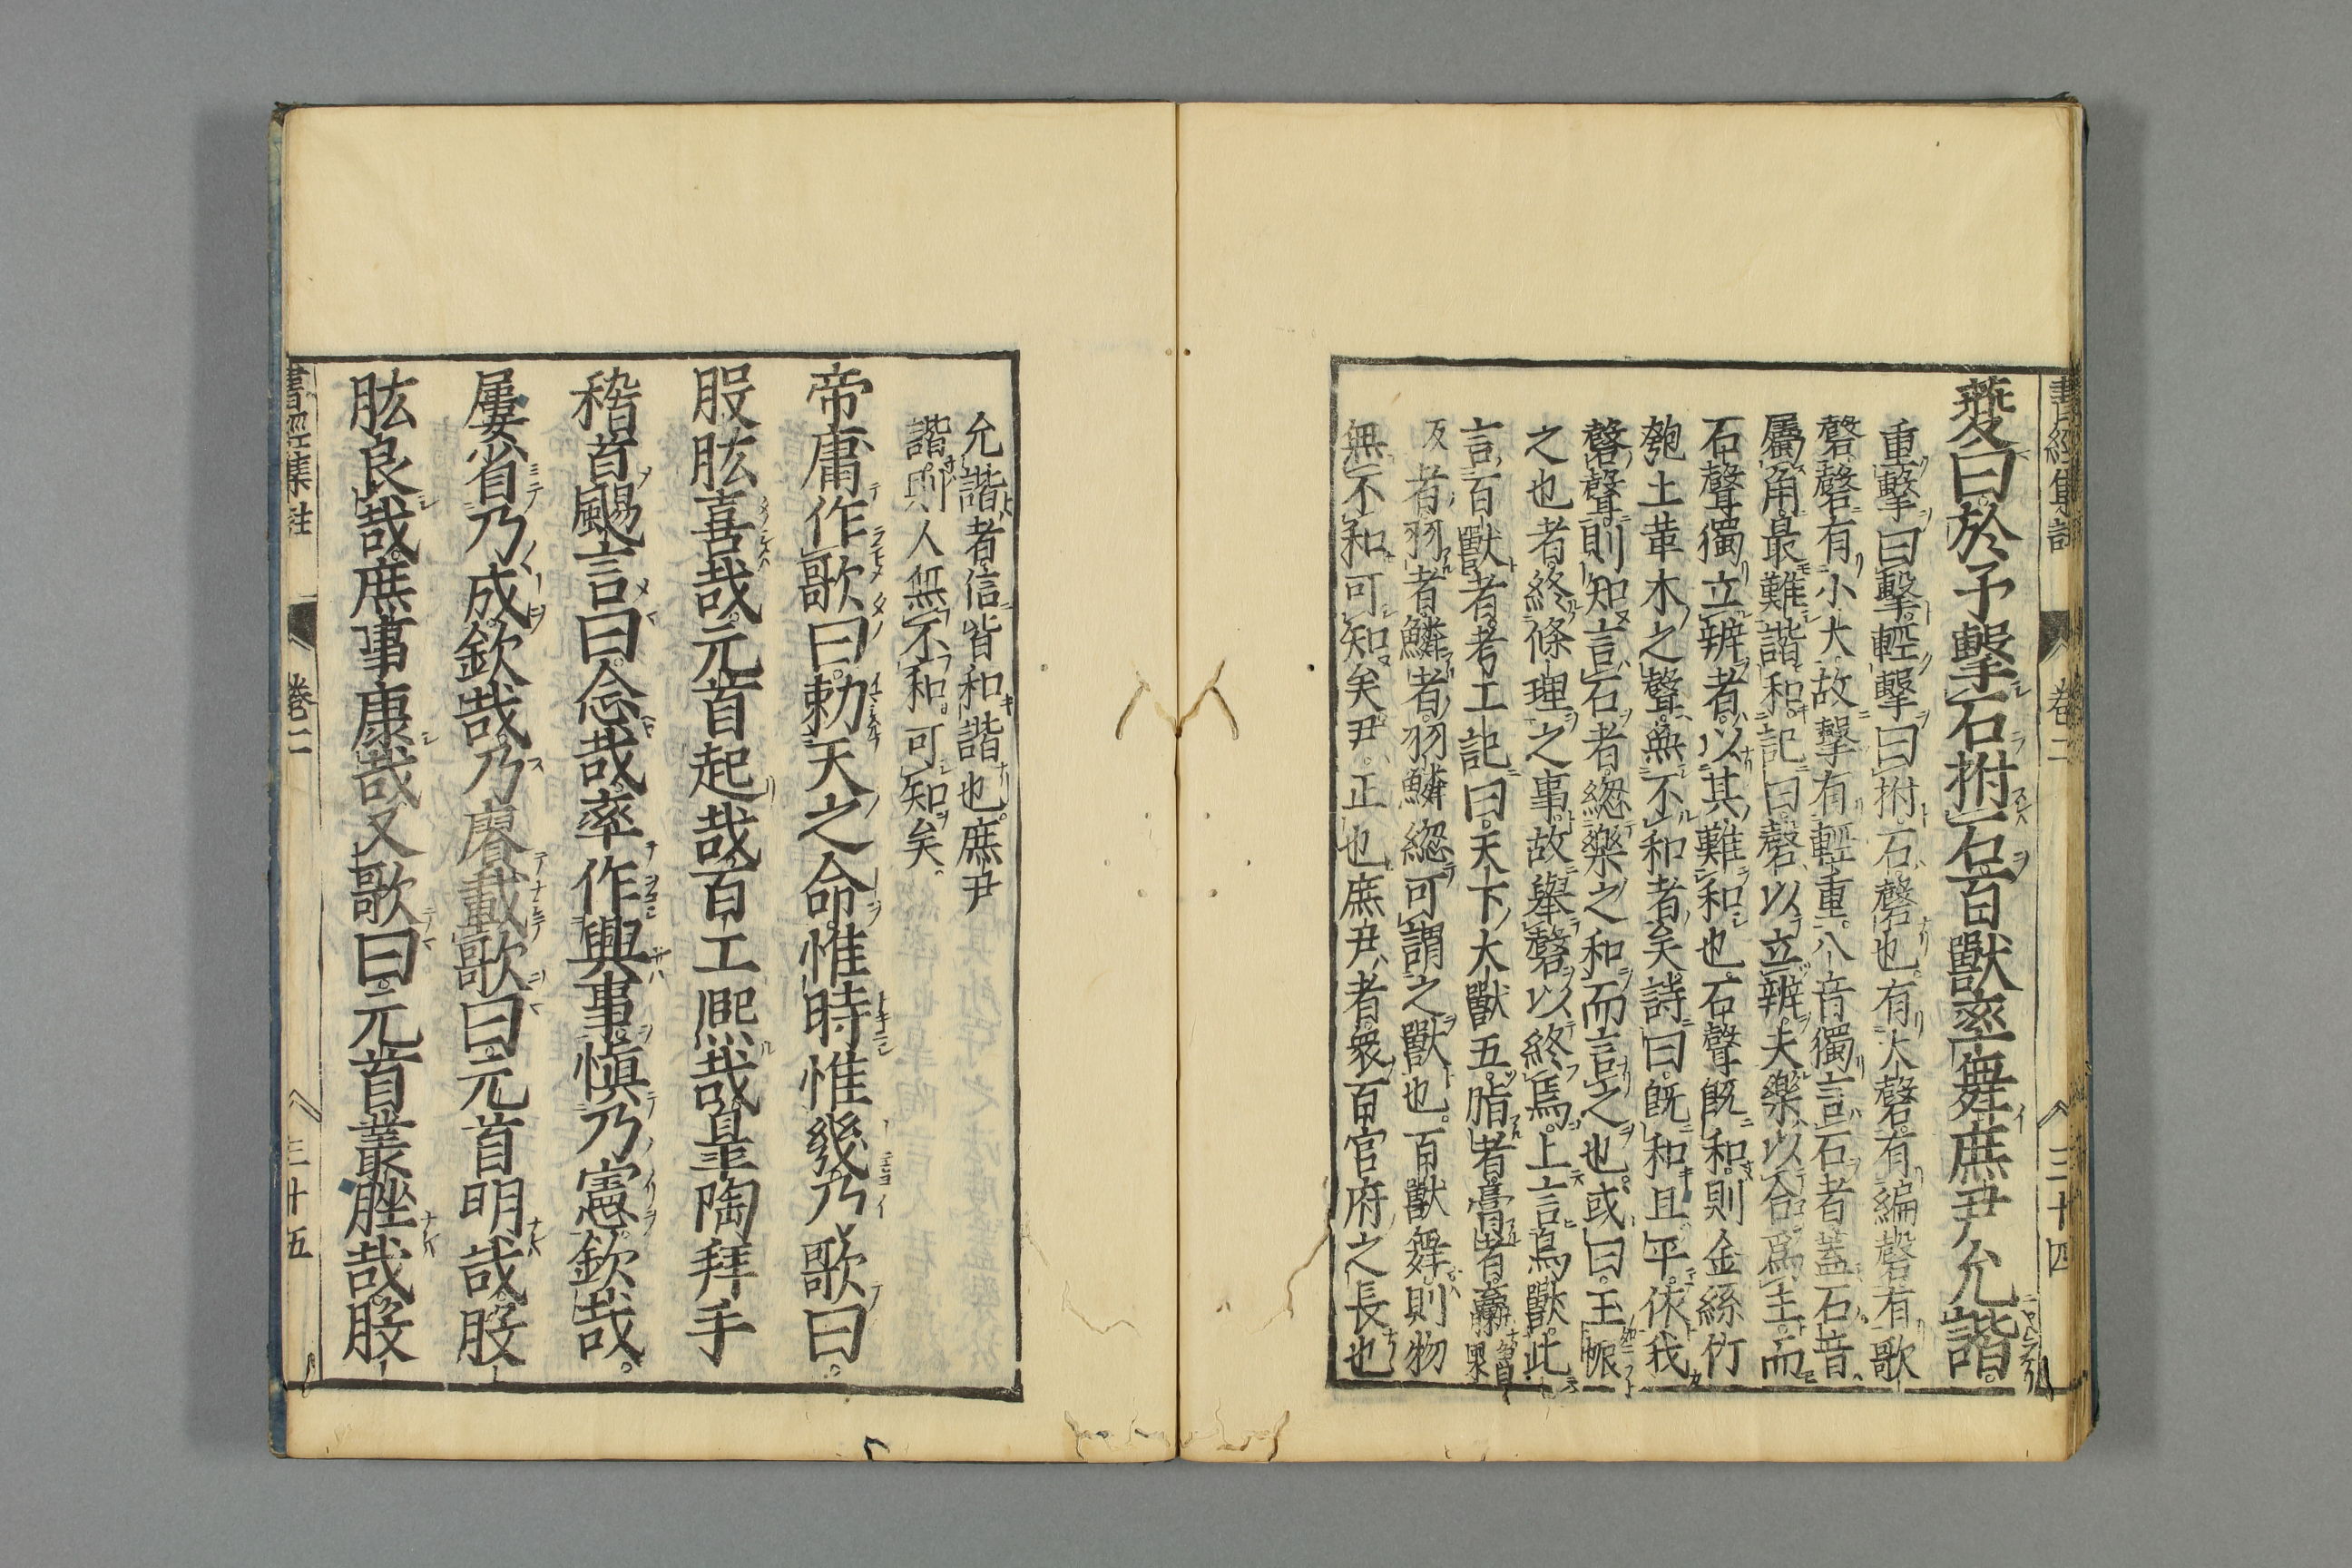 書經集註 卷二 三十四
夔曰於予擊石拊石百獸率舞庶尹允諧
重擊曰擊輕擊曰拊石磬也有大磬有編磬有歌
磬磬有小大故擊有輕重八音獨言石者蓋石音
屬角最難諧和記曰磬以立辨夫樂以合爲主而
石聲獨立辨者以其難和也石聲旣和則金絲竹
匏土革木之聲無不和者矣詩曰旣和且平依我
磬聲則知言石者緫樂之和而言之也或曰玉振
之也者終條理之事故舉磬以終焉上言鳥獸此
言百獸者考工記曰天下大獸五脂者膏者臝果
反者羽者鱗者羽鱗緫可謂之獸也百獸舞則物
無不和可知矣尹正也庶尹者衆百官府之長也
允諧者信皆和諧也庶尹
諧則人無不和可知矣
帝庸作歌曰勑天之命惟時惟幾乃歌曰
股肱喜哉元首起哉百工熈哉皐陶拜手
稽首颺言曰念哉率作興事愼乃憲欽哉
屢省乃成欽哉乃賡載歌曰元首明哉股
肱良哉庶事康哉又歌曰元首叢脞哉股
書經集註 卷二 三十五